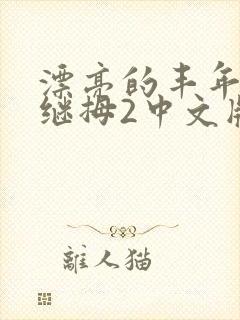 漂亮的丰年
继拇2中文版
離人猫